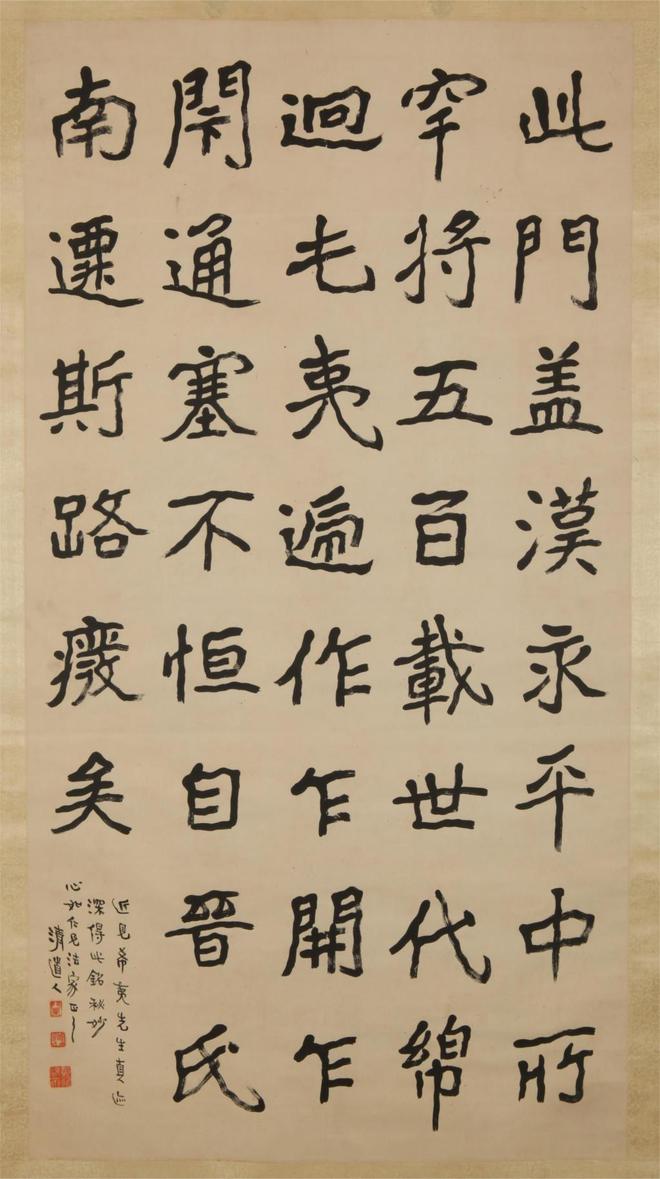 此門盖漢永平中所
穿將五百載世代綿
迴屯夷遞作乍開乍
閇通塞不恒自晉氏
南遷斯路癈矣
近見希夷先生真迹
深得此銘秘妙
心如仁兄法家正之
清道人